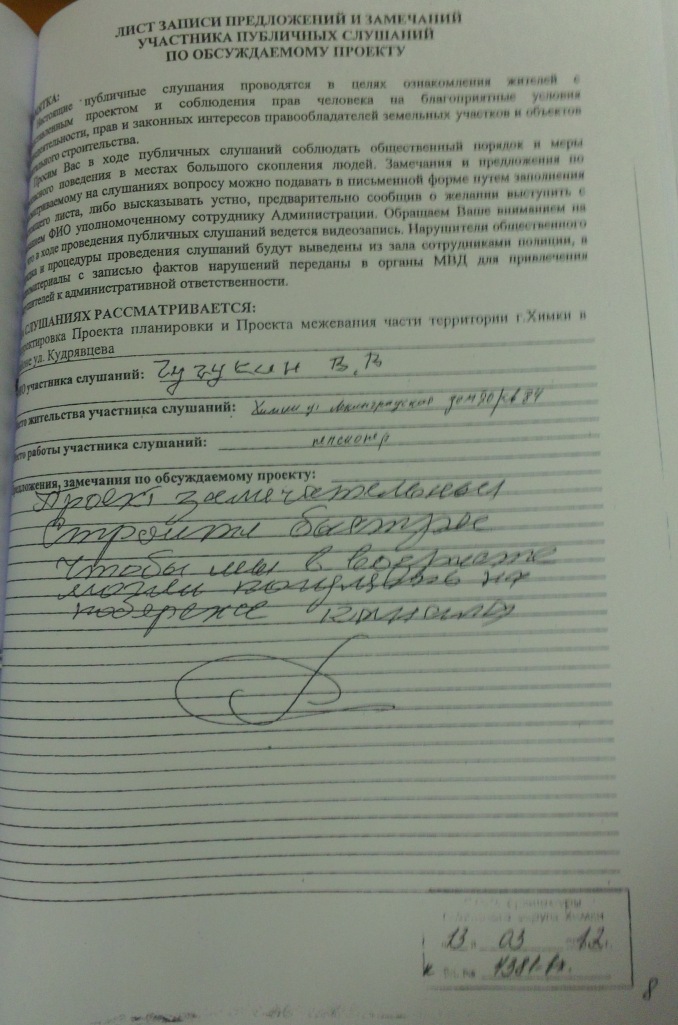 ЛИСТ ЗАПИСИ ПРЕДЛОЖЕНИЙ И ЗАМЕЧАНИЙ
УЧАСТНИКА ПУБЛИЧНЫХ СЛУШАНИЙ
ПО ОБСУЖДАЕМОМУ ПРОЕКТУ
Настоящие публичные слушания проводятся в целях ознакомления жителей с
проектом и соблюдения прав человека на благоприятные условия
прав и законных интересов правообладателей земельных участков и объектов
строительства.
Просим Вас в ходе публичных слушаний соблюдать общественный порядок и меры
поведения в местах большого скопления людей. Замечания и предложения по
на слушаниях вопросу можно подавать в письменной форме путем заполнения
листа, либо высказывать устно, предварительно сообщив о желании выступить с
ФИО уполномоченному сотруднику Администрации. Обращаем Ваше вниманием на
в ходе проведения публичных слушаний ведется видеозапись. Нарушители общественного
и процедуры проведения слушаний будут выведены из зала сотрудниками полиции, а
с записью фактов нарушений переданы в органы МВД для привлечения
к административной ответственности.
СЛУШАНИЯХ РАССМАТРИВАЕТСЯ:
Проекта планировки и Проекта межевания части территории г.Химки в
ул. Кудрявцева
участника слушаний: Чугукин В.В
жительства участника слушаний: Химки ул Ленинградская дом 20 кв 84
работы участника слушаний: пенсионер
замечания по обсуждаемому проекту:
Проект замечательный
Строить быстрее
Чтобы мы в возрасте
могли погулять на
канала
13 03 12 г.
8